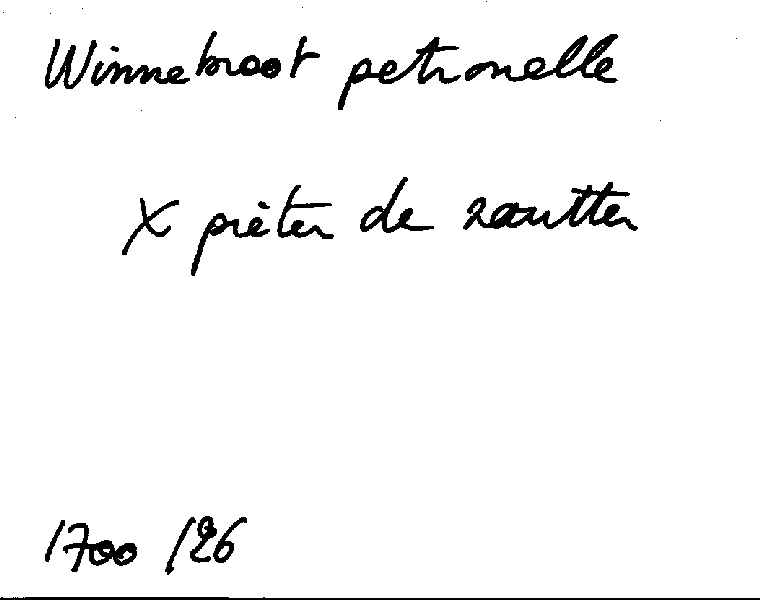 Winnebroot petronelle
X pieter de zautter
1700 /26